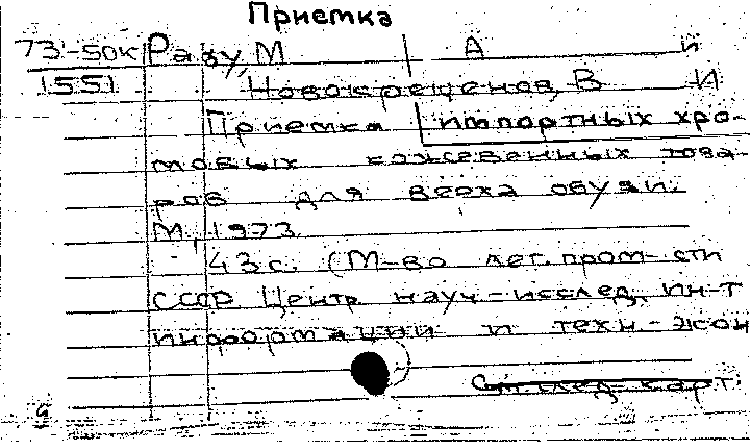 Приемка
73-50к Разу, М А и
1551 Новокрещенов, В И
Приемка импортных хро-
мовых кожевенных това-
ров для верха обуви.
М., 1973
43 с. (М-во лег. пром-сти
СССР Центр науч-исслед. ин-т
информации и техн-экон
См. след. карт.